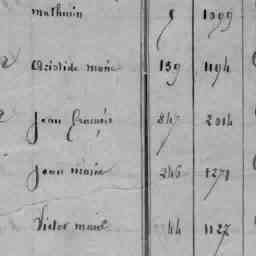 mathurin 5 1399
Aristide marie 159 1194
Jean François 847 2014
Jean marie 246 1271
Victor marie 44 1127